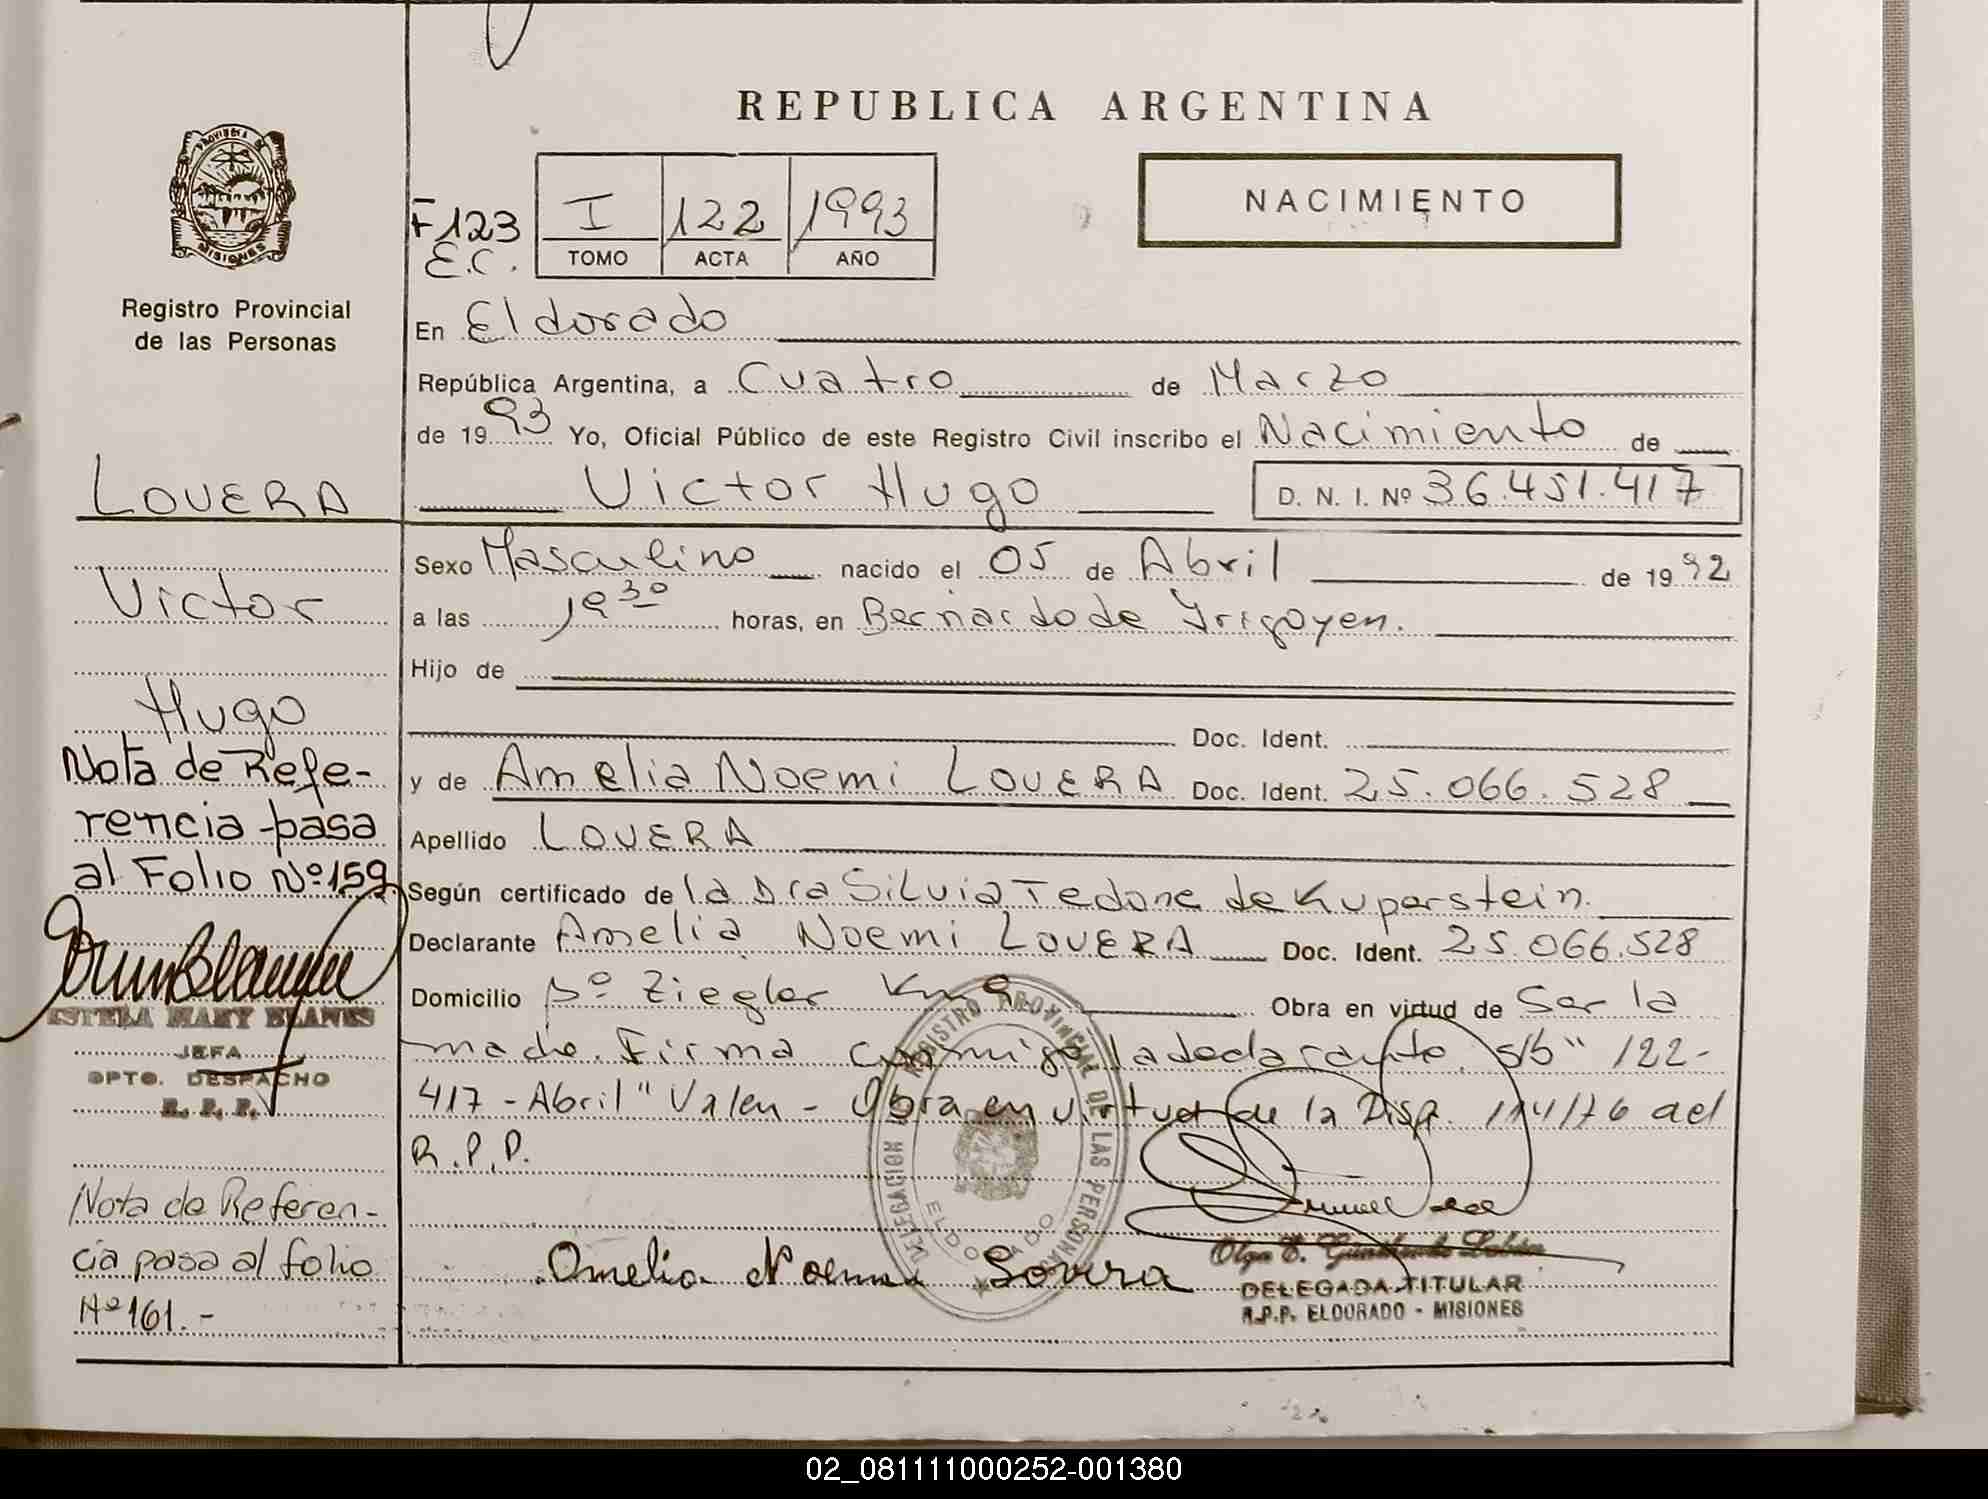 REPUBLICA ARGENTINA
PROVINCIA DE
MISIONES
Registro Provincial
de las Personas
F 123
E.C.
I 122 1993
TOMO ACTA AÑO
NACIMIENTO
En Eldorado
República Argentina, a Cuatro de Marzo
de 1993 Yo, Oficial Público de este Registro Civil inscribo el Nacimiento de
Victor Hugo D. N. I. Nº 36.451.417
Sexo Masculino nacido el 05 de Abril de 1992
a las 19 30 horas, en Bernardo de Yrigoyen.
Hijo de
Doc. Ident.
y de Amelia Noemi LOVERA Doc. Ident. 25.066.528
Apellido LOVERA
Según certificado de la Dra Silvia Tedone de Kuperstein.
Declarante Amelia Noemi LOVERA Doc. Ident. 25.066.528
Domicilio Bº Ziegler Km 9 Obra en virtud de Ser la
madre. Firma conmigo la declarante. s/b " 122-
417 - Abril" Valen - Obra en virtud de la Disp. 114/76 del
R.P.P.
Amelia Noemi Lovera
DELEGACION REGISTRO PROVINCIAL DE LAS PERSONAS
ELDORADO
Olga E.
DELEGADA TITULAR
R.P.P. ELDORADO - MISIONES
LOVERA
Victor
Hugo
Nota de Refe-
rencia pasa
al Folio Nº 159
ESTELA MARY BLANES
JEFA
DPTO. DESPACHO
R. P. P.
Nota de Referen-
cia pasa al folio
Nº 161.-
02_081111000252-001380